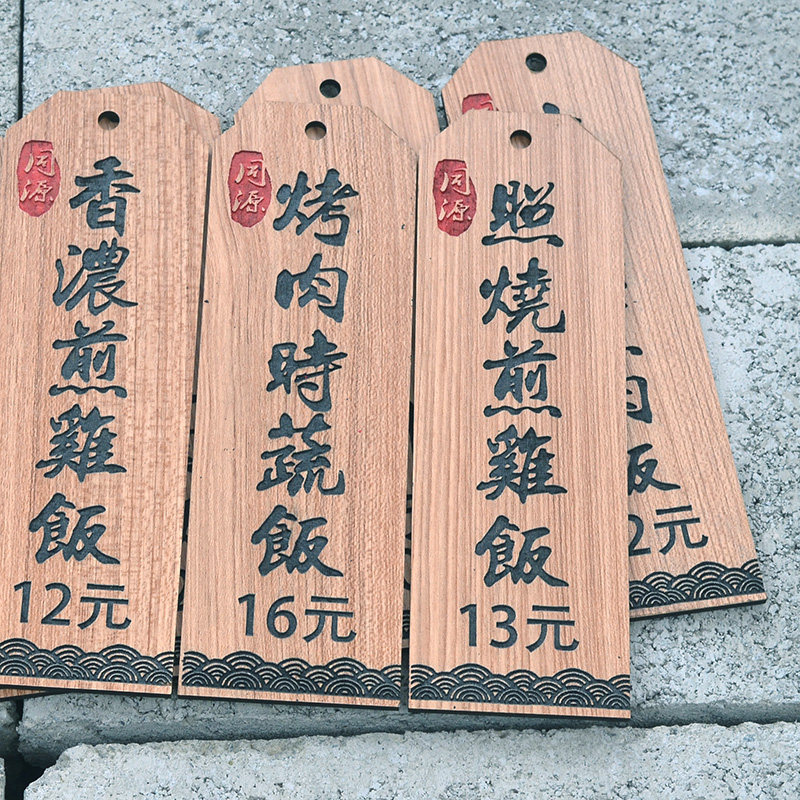 同源
香濃煎雞飯
12元
同源
烤肉時蔬飯
16元
同源
照燒煎雞飯
13元
肉飯
2元